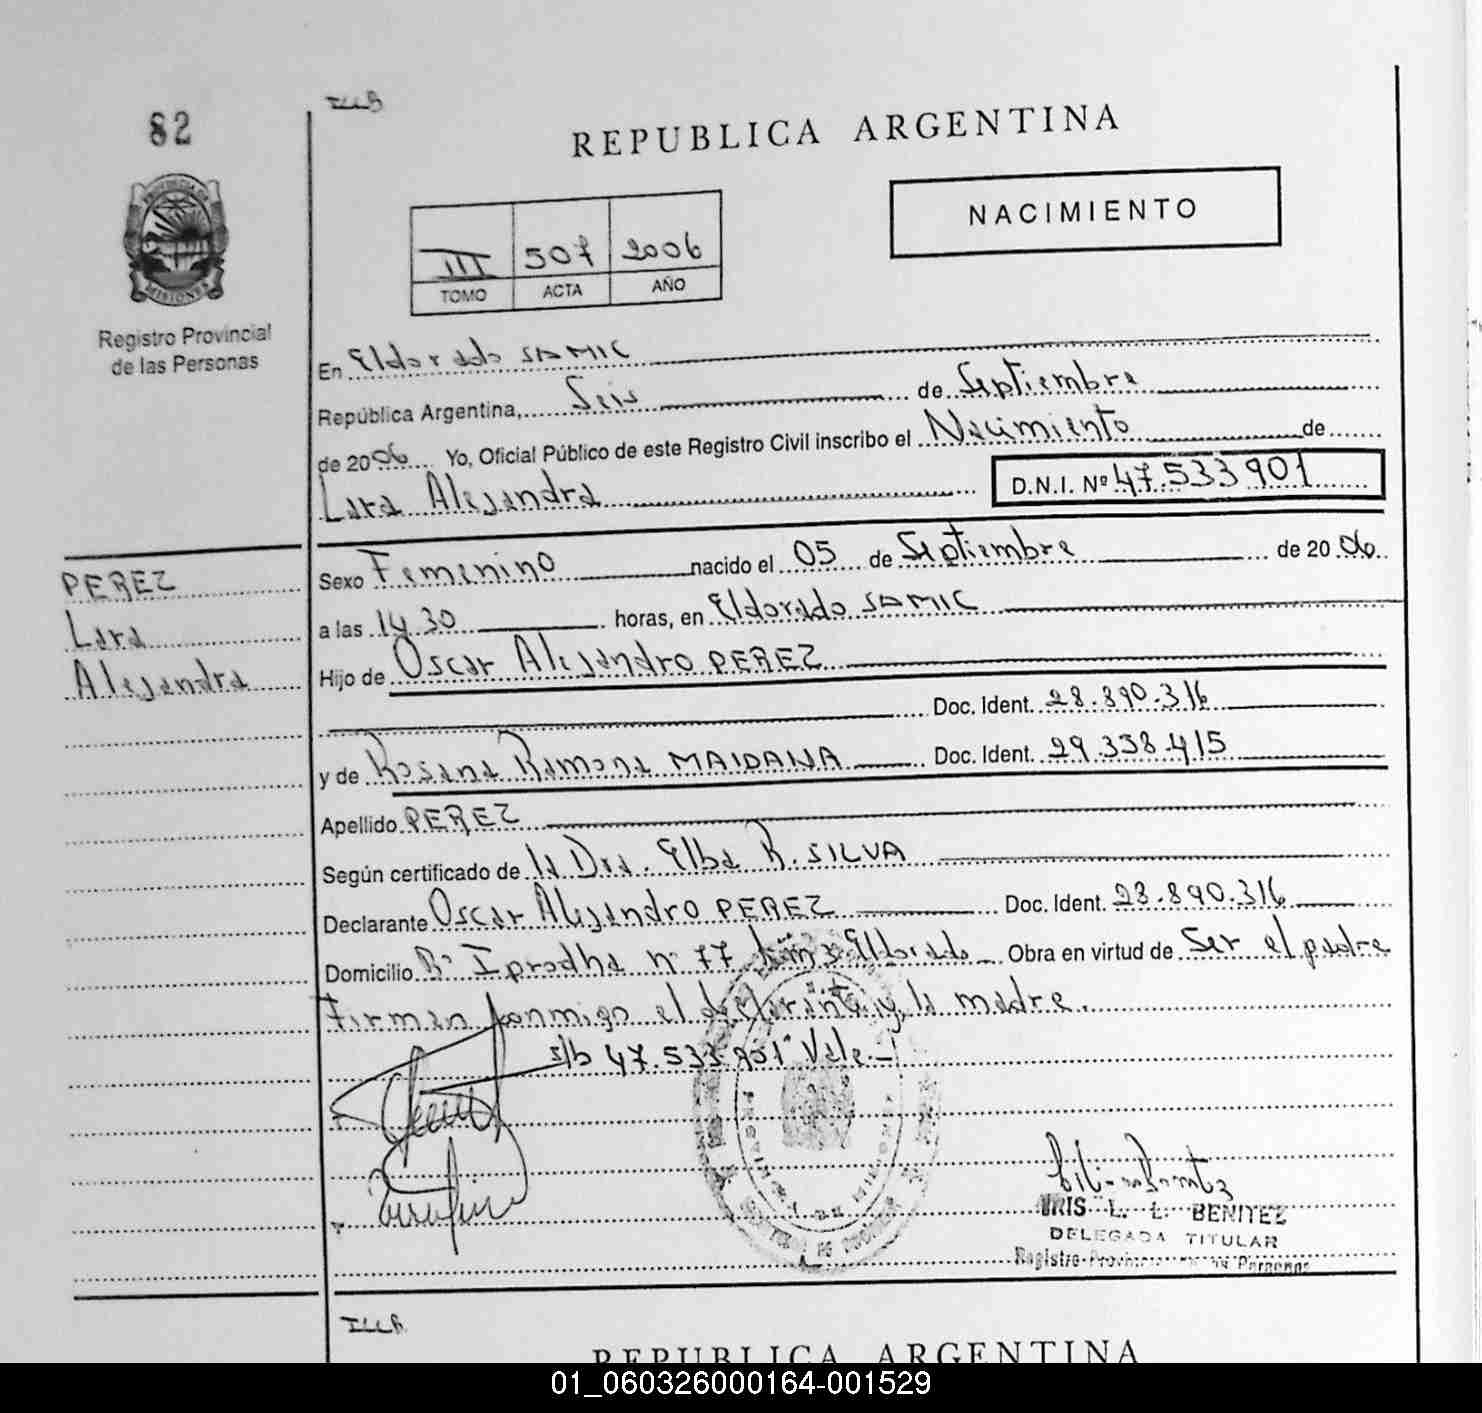 ILLB
82
REPUBLICA ARGENTINA
NACIMIENTO
III 507 2006
TOMO ACTA AÑO
PROVINCIA DE
MISIONES
Registro Provincial
de las Personas
En Eldorado SAMIC
República Argentina, Seis de Septiembre
de 2006 Yo, Oficial Público de este Registro Civil inscribo el Nacimiento de
Lara Alejandra D.N.I. Nº 47.533 901
PEREZ
Lara
Alejandra
Sexo Femenino nacido el 05 de Septiembre de 20 06
a las 14 30 horas, en Eldorado SAMIC
Hijo de Oscar Alejandro PEREZ
Doc. Ident. 28.890.316
y de Rosana Ramona MAIDANA Doc. Ident. 29.338.415
Apellido PEREZ
Según certificado de la Dra. Elba R. SILVA
Declarante Oscar Alejandro PEREZ Doc. Ident. 28.890.316
Domicilio Bº Iprodha nº 77 km 3 Eldorado Obra en virtud de Ser el padre
Firman conmigo el declarante y la madre.
s/b 47.533.901 Vale.-
IRIS L. L. BENITEZ
DELEGADA TITULAR
Registro Personas
ILLB
REPUBLICA ARGENTINA
01_060326000164-001529